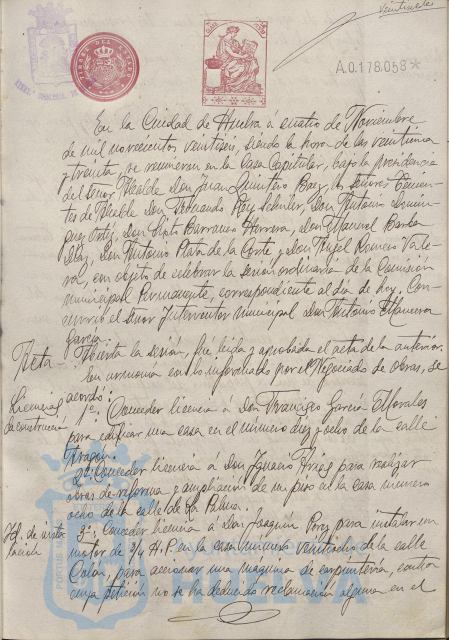 veintiseis
A.0.178.058*
En la Ciudad de Huelva á cuatro de Noviembre
de mil novecientos veintiseis, siendo la hora de las veintiuna
y treinta, se reunieron en la Casa Capitular, bajo la presidencia
del Señor Alcalde Don Juan Quintero Baez, los Señores Tenien-
tes de Alcalde Don Fernando Rey Don Antonio Domin-
guez Ortiz, Don Barranco Herrera, Don Manuel Barba
Diaz, Don Antonio Plata de la Corte y Don Angel Romero Vale-
ra, con objeto de celebrar la sesión ordinaria de la Comisión
Municipal Permanente, correspondiente al dia de hoy. Con-
currió el Señor Interventor Municipal Don Antonio
Garcia.
Acta - Abierta la sesión, fué leida y aprobada el acta de la anterior.
En armonia con lo informado por el Negociado de obras, se
acordó:
Licencias
1º: Conceder licencia á Don Francisco Garcia Morales
para edificar una casa en el número diez y ocho de la calle
Aragon.
2º: Conceder licencia á Don Ignacio Arias para realizar
obras de reforma y ampliación de un piso en la casa número
ocho de la calle de La Palma.
3º: Conceder licencia á Don Joaquin Perez para instalar un
motor de 3/4 H.P. en la casa número veintidos de la calle
Colón, para accionar una maquina de carpinteria, contra
cuya petición no se ha deducido reclamación alguna en el
HUELVA